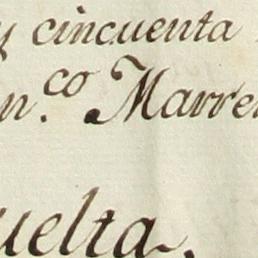 y cincuenta
n.co Marre
uelta.